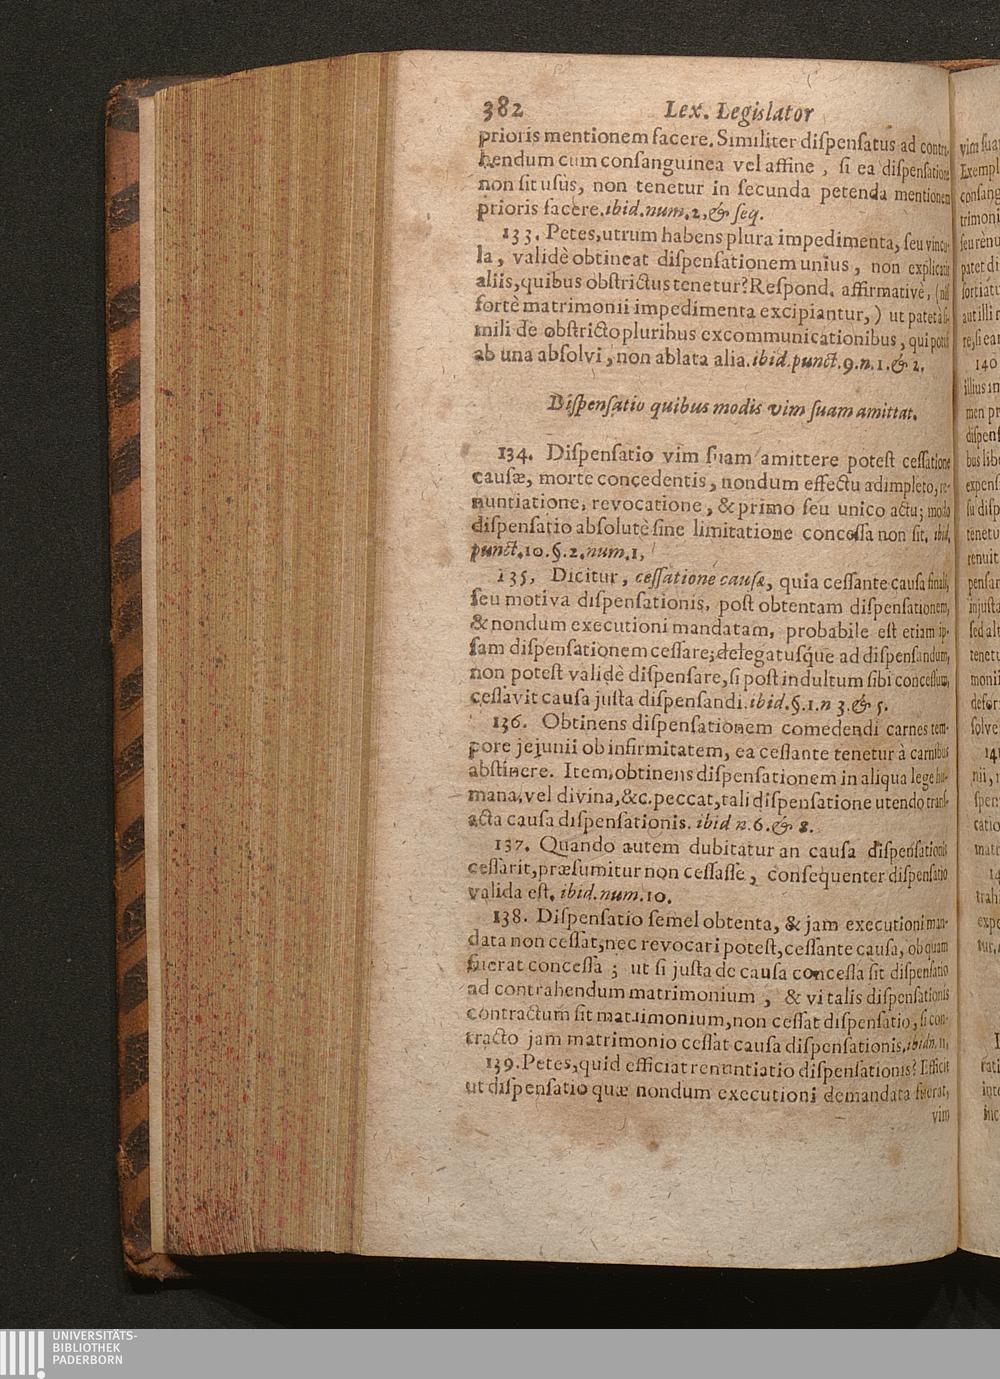 382 Lex. Legislator
prioris mentionem facere. Similiter dispensatus ad contra-
hendum cum consanguinea vel affine, si ea dispensatione
non sit usus, non tenetur in secunda petenda mentionem
prioris facere. ibid. num. 2, & seq.
133. Petes, utrum habens plura impedimenta, seu vincu-
la, validè obtineat dispensationem unius, non explicatis
aliis, quibus obstrictus tenetur? Respond. affirmativè, (nisi
fortè matrimonii impedimenta excipiantur,) ut patet à si-
mili de obstricto pluribus excommunicationibus, qui potest
ab una absolvi, non ablata alia. ibid. punct. 9. n. 1. & 2.
Dispensatio quibus modis vim suam amittat.
134. Dispensatio vim suam amittere potest cessatione
causæ, morte concedentis, nondum effectu adimpleto, re-
nuntiatione, revocatione, & primo seu unico actu; modo
dispensatio absolutè sine limitatione concessa non sit. ibid.
punct. 10. §. 2. num. 1,
135, Dicitur, cessatione causæ, quia cessante causa finali,
seu motiva dispensationis, post obtentam dispensationem,
& nondum executioni mandatam, probabile est etiam ip-
sam dispensationem cessare; delegatusq́ue ad dispensandum,
non potest validè dispensare, si post indultum sibi concessum,
cessavit causa justa dispensandi. ibid. §. 1. n 3. & 5.
136. Obtinens dispensationem comedendi carnes tem-
pore jejunii ob infirmitatem, ea cessante tenetur à carnibus
abstinere. Item, obtinens dispensationem in aliqua lege hu-
mana, vel divina, &c. peccat, tali dispensatione utendo trans-
acta causa dispensationis. ibid n. 6. & 8.
137. Quando autem dubitatur an causa dispensationis
cessarit, præsumitur non cessasse, consequenter dispensatio
valida est. ibid. num. 10.
138. Dispensatio semel obtenta, & jam executioni man-
data non cessat, nec revocari potest, cessante causa, ob quam
fuerat concessa; ut si justa de causa concessa sit dispensatio
ad contrahendum matrimonium, & vi talis dispensationis
contractum sit matrimonium, non cessat dispensatio, si con-
tracto jam matrimonio cessat causa dispensationis, ibid n. 11,
139. Petes, quid efficiat renuntiatio dispensationis? Efficit
ut dispensatio quæ nondum executioni demandata fuerat,
vim
UNIVERSITÄTS-
BIBLIOTHEK
PADERBORN